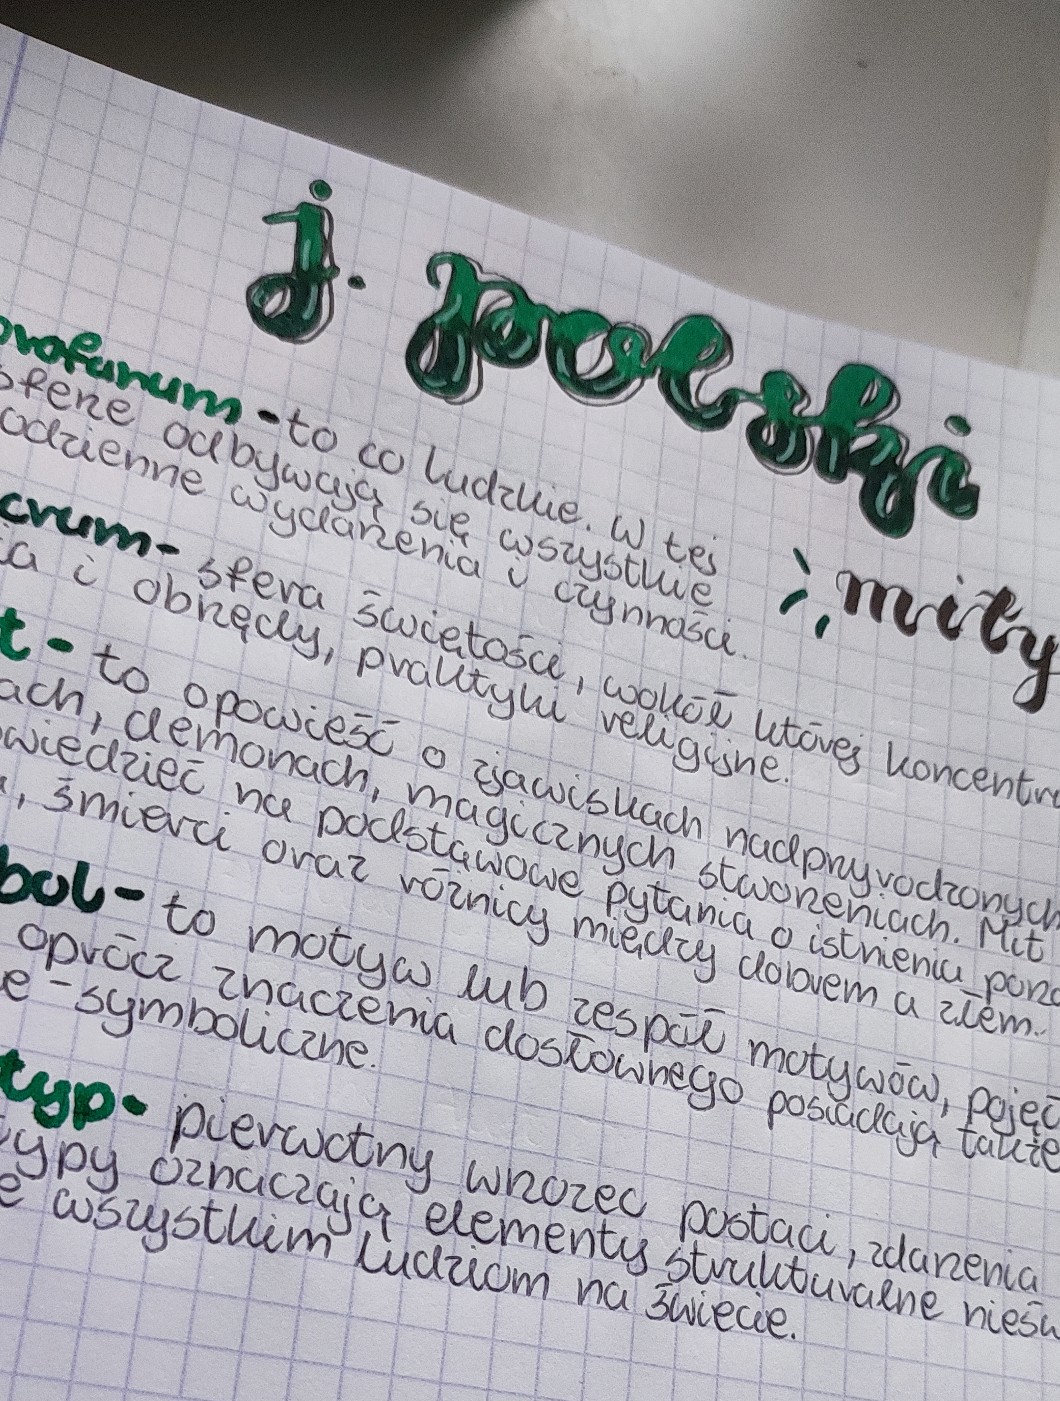 j. polski
mity
profanum - to co ludzkie. W tej
sferze odbywają się wszystkie
codzienne wydarzenia i czynności.
crum - sfera świętości, wokół której koncentru
ia i obrzędy, praktyki religijne.
t - to opowieść o zjawiskach nadprzyrodzonych
ach, demonach, magicznych stworzeniach. Mit
wiedzieć na podstawowe pytania o istnieniu
, śmierci oraz różnicy między dobrem a złem.
bol - to motyw lub zespół motywów, pojęć
oprócz znaczenia dosłownego posiadają także
e - symboliczne.
typ - pierwotny wzorzec postaci, zdarzenia
typy oznaczają elementy strukturalne nieświ
e wszystkim ludziom na świecie.